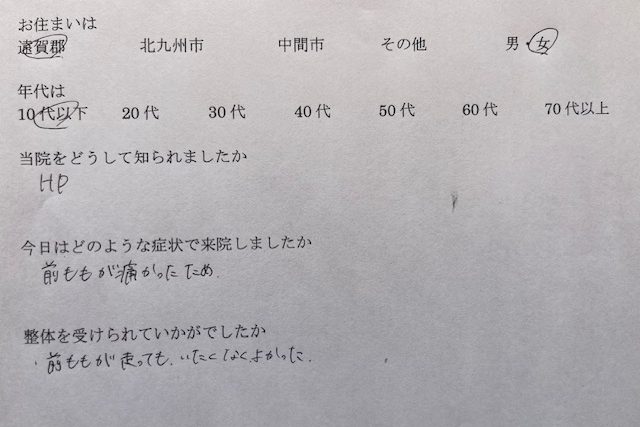 お住まいは
遠賀郡 北九州市 中間市 その他 男・女
年代は
10代以下 20代 30代 40代 50代 60代 70代以上
当院をどうして知られましたか
HP
今日はどのような症状で来院しましたか
前ももが痛かったため.
整体を受けられていかがでしたか
・前ももが走っても、いたくなくよかった.